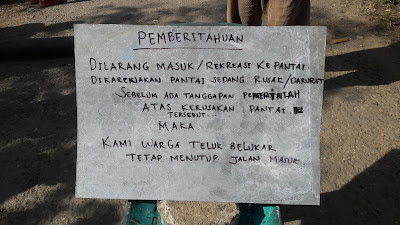 PEMBERITAHUAN
DILARANG MASUK/REKREASI KE PANTAI
DIKAREKNAKAN PANTAI SEDANG RUSAK/DARURAT
SEBELUM ADA TANGGAPAN PEMERINTAH
ATAS KERUSAKAN PANTAI
TERSEBUT
MAKA
KAMI WARGA TELUK BELUKAR
TETAP MENUTUP JALAN MASUK.